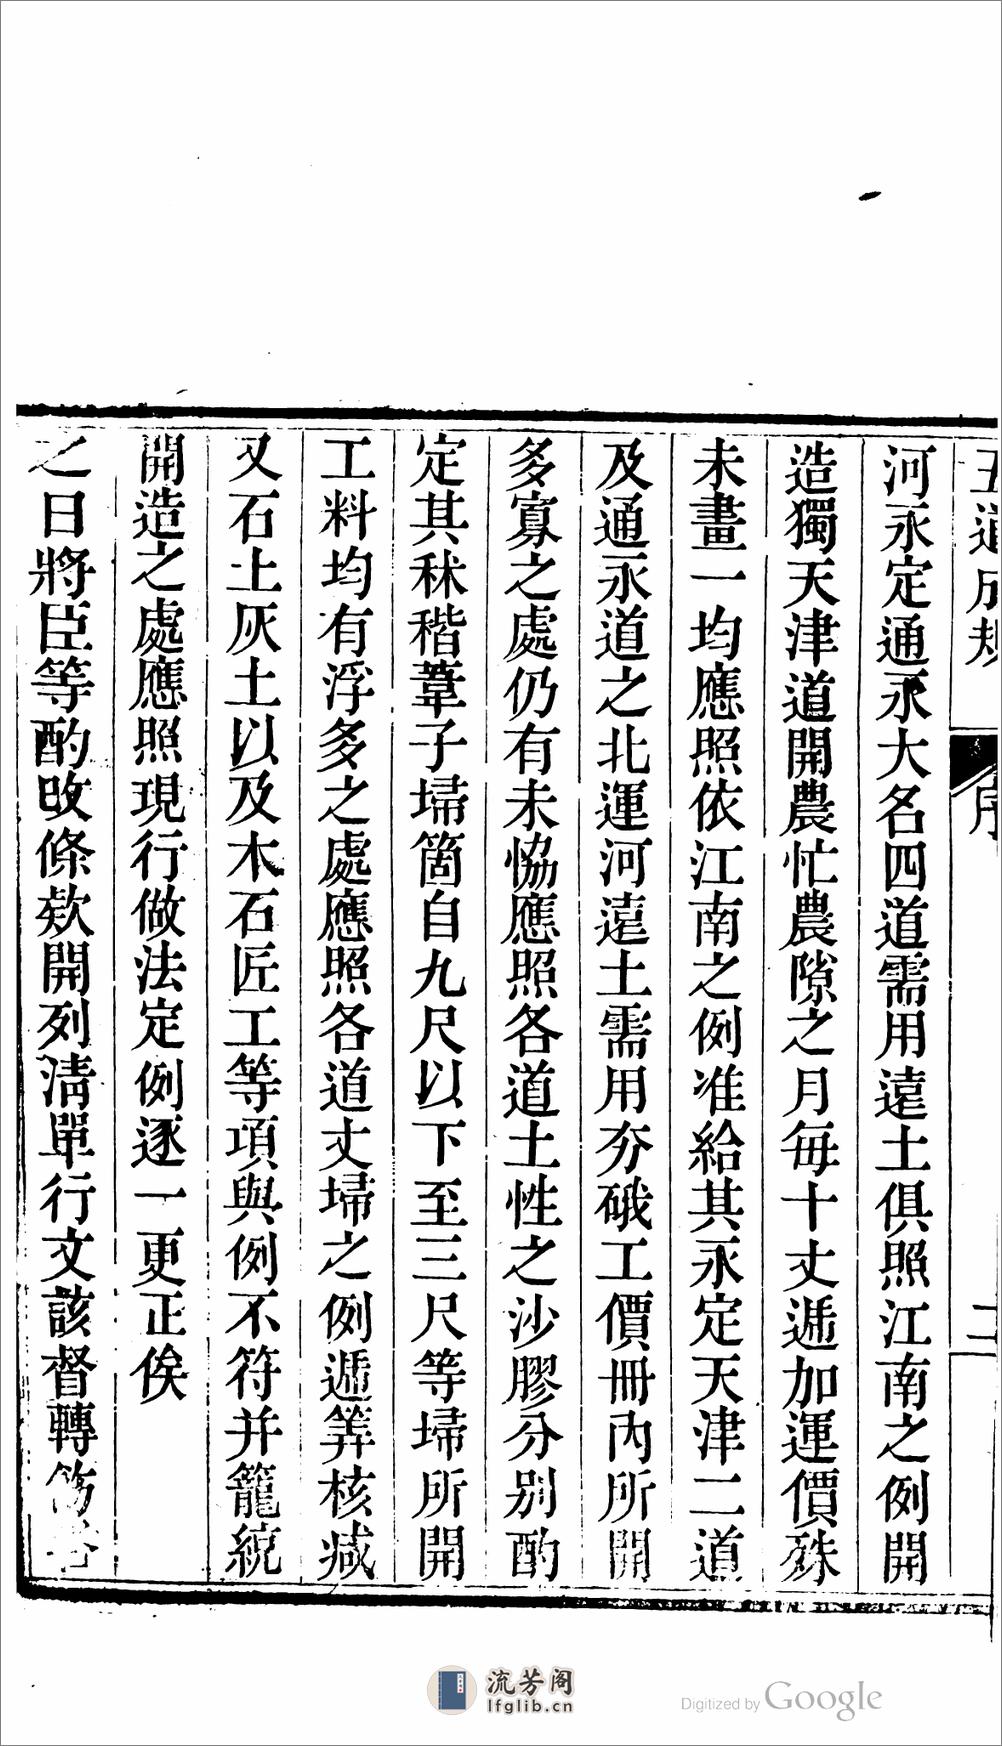 五道成規
序
二
河永定通永大名四道需用遠土俱照江南之例開
造獨天津道開農忙農隙之月每十丈遞加運價殊
未畫一均應照依江南之例准給其永定天津二道
及通永道之北運河遠土需用夯硪工價冊內所開
多寡之處仍有未恊應照各道土性之沙膠分别酌
定其秫稭葦子埽箇自九尺以下至三尺等埽所開
工料均有浮多之處應照各道丈埽之例遞筭核减
又石土灰土以及木石匠工等項與例不符并籠統
開造之處應照現行做法定例逐一更正俟
之日將臣等酌改條欵開列清單行文該督轉飭
流芳阁
lfglib.cn
Digitized by Google